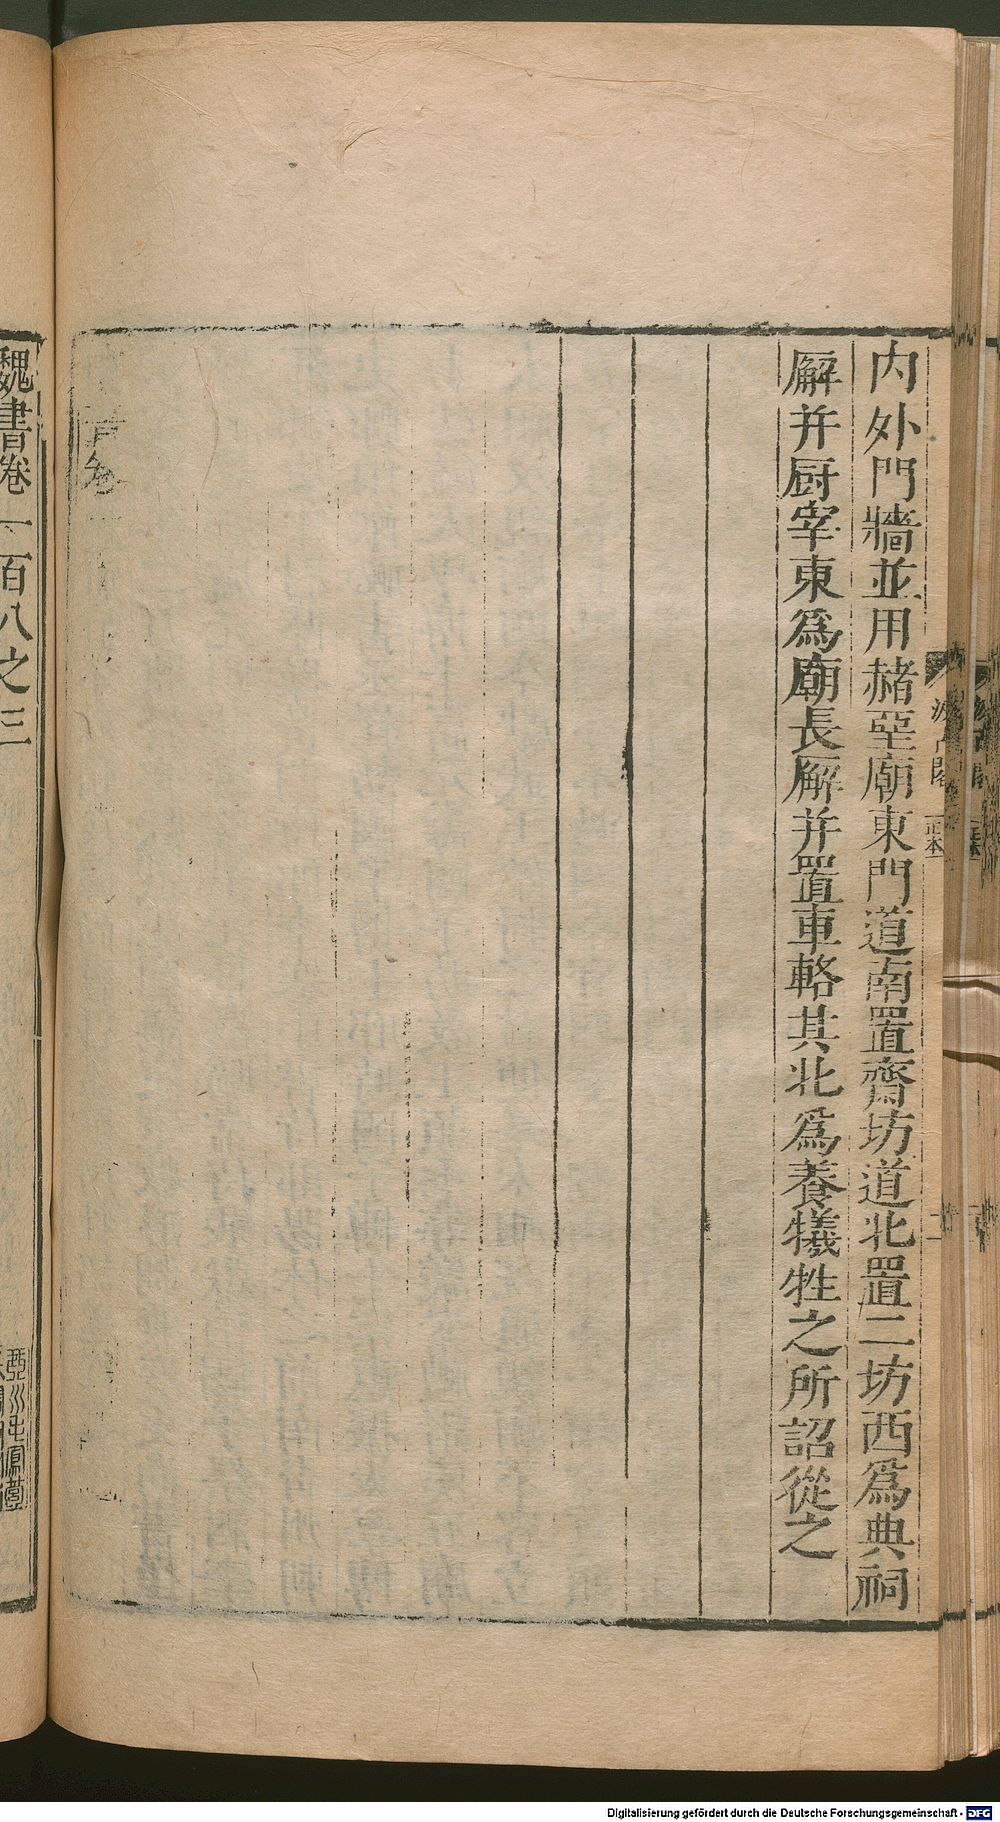 内外門牆並用赭堊廟東門道南置齋坊道北置二坊西爲典祠
廨并厨宰東爲廟長廨并置車輅其北爲養犧牲之所詔從之
魏書卷一百八之三
正本
Digitalisierung gefördert durch die Deutsche Forschungsgemeinschaft - DFG